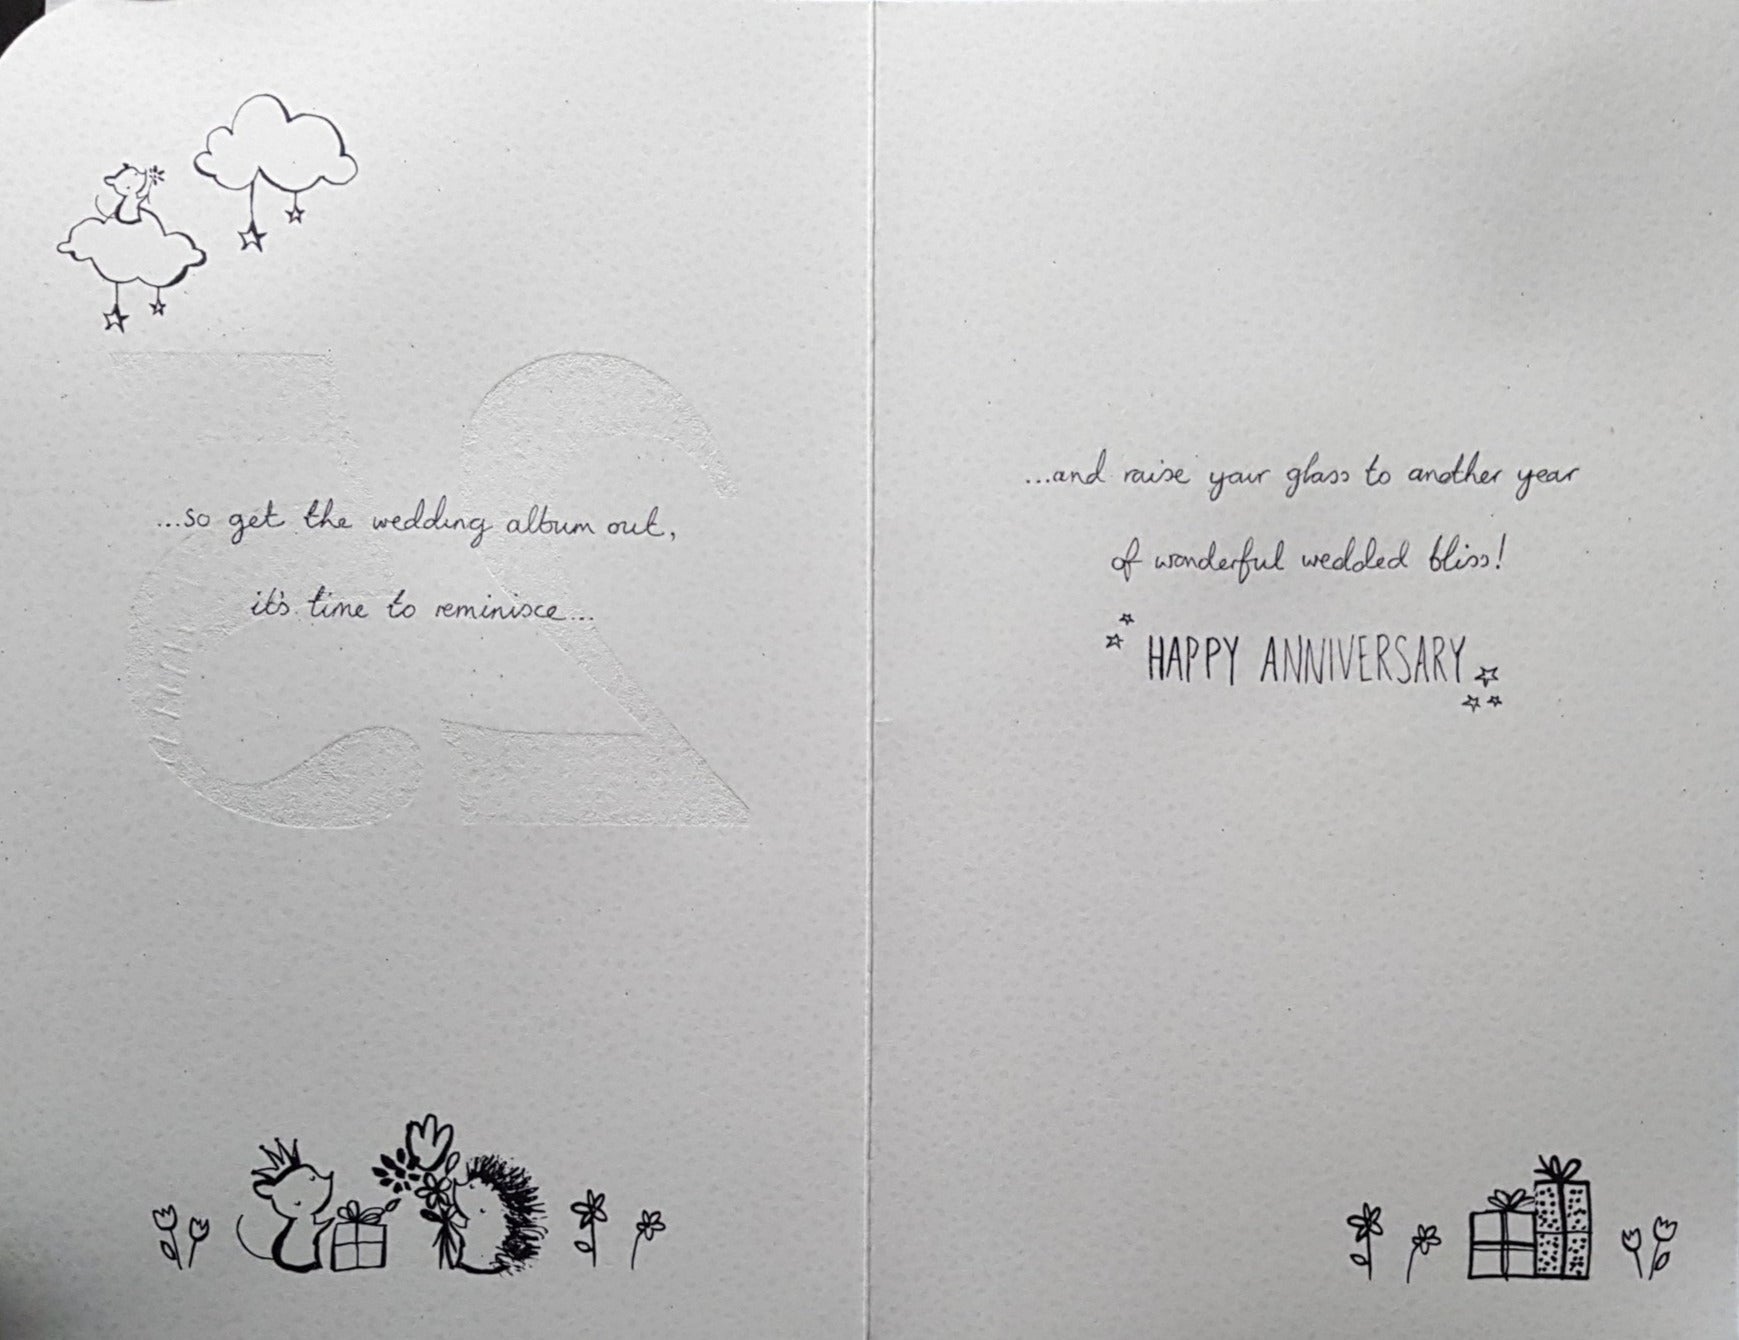 ...so get the wedding album out,
it's time to reminisce...
...and raise your glass to another year
of wonderful wedded bliss!
HAPPY ANNIVERSARY
25